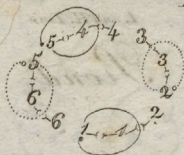 5 4 4
3
3
2
5
6
6
1 1 2